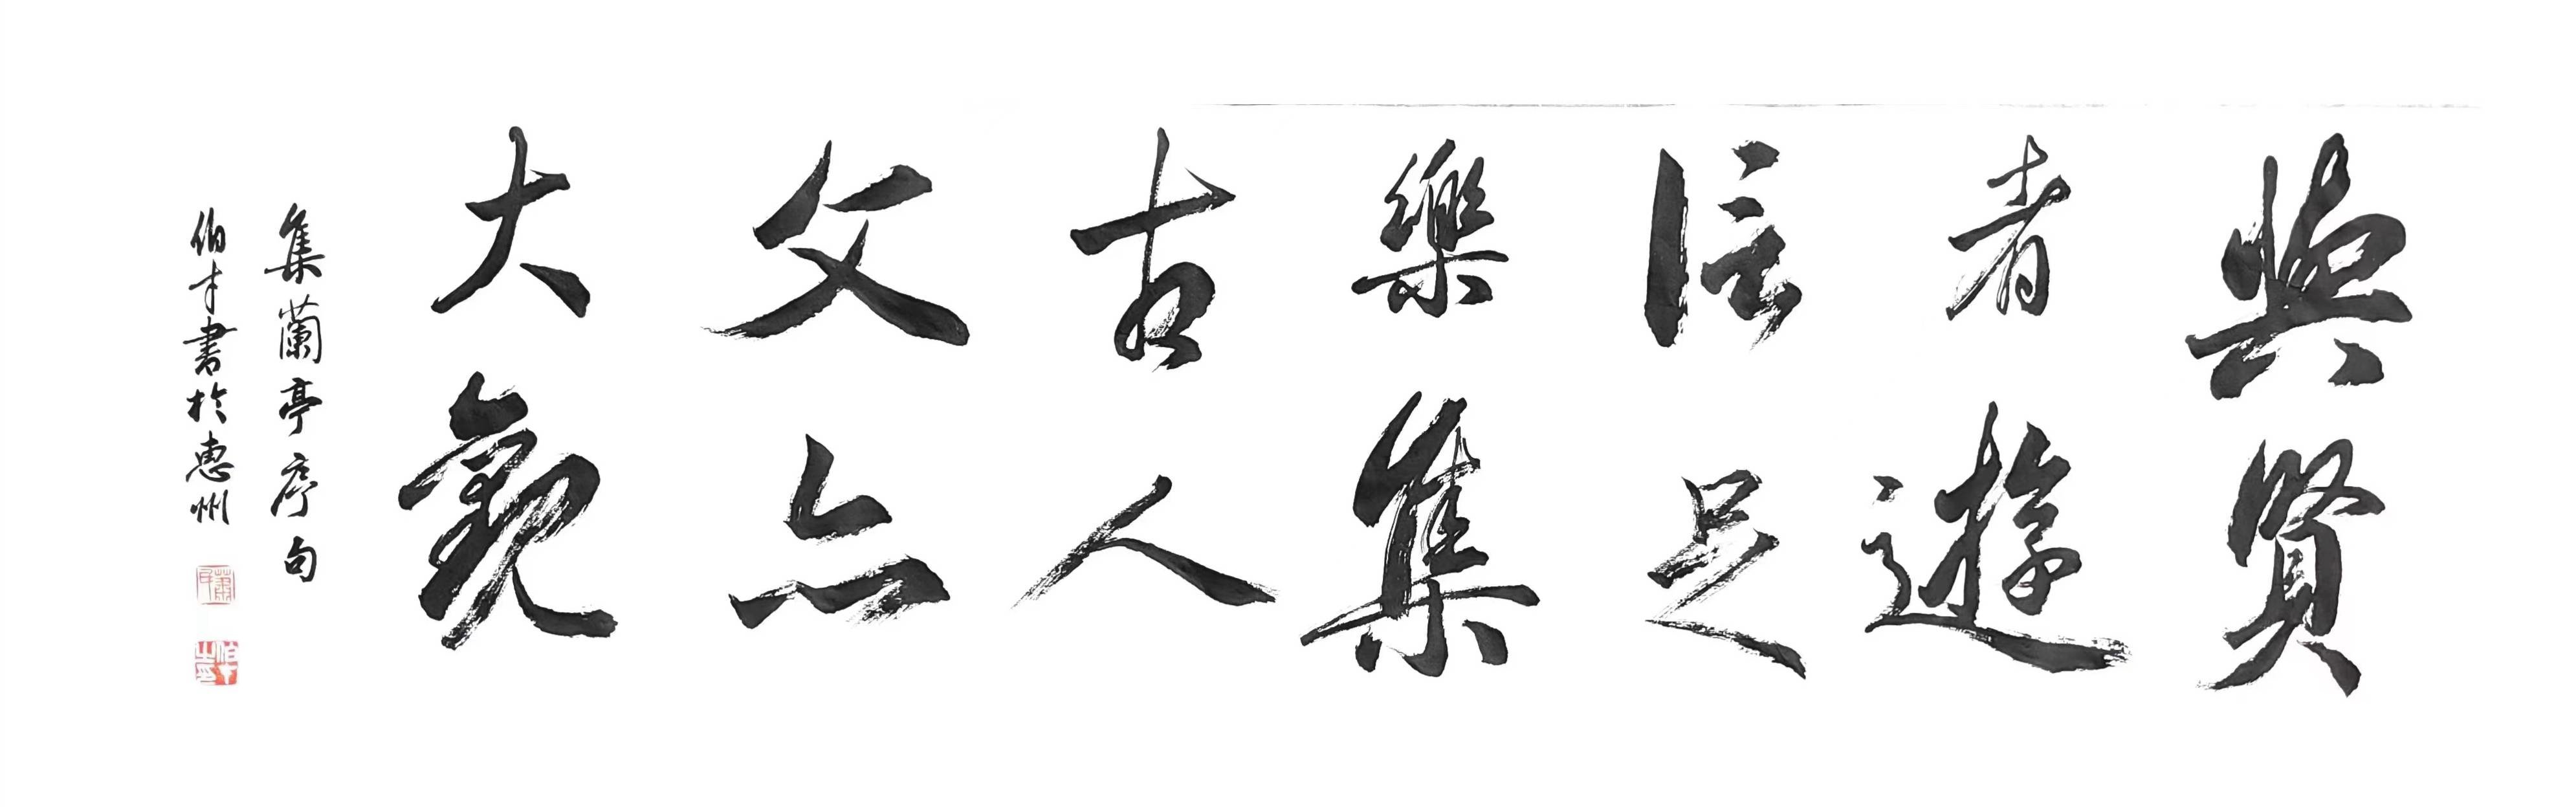 與賢
者遊
信足
樂集
古人
文亦
大觀
集蘭亭序句
伯丰書於惠州